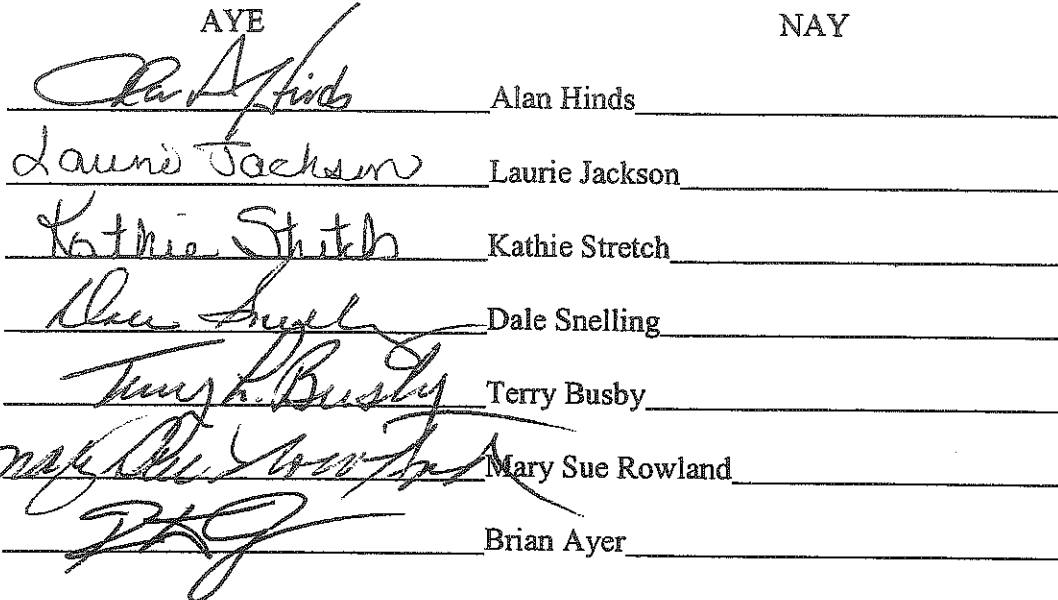 AYE NAY
Alan D Hinds Alan Hinds
Laurie Jackson Laurie Jackson
Kathie Stretch Kathie Stretch
Dale Snelling Dale Snelling
Terry L. Busby Terry Busby
Mary Sue Rowland Mary Sue Rowland
Brian Ayer